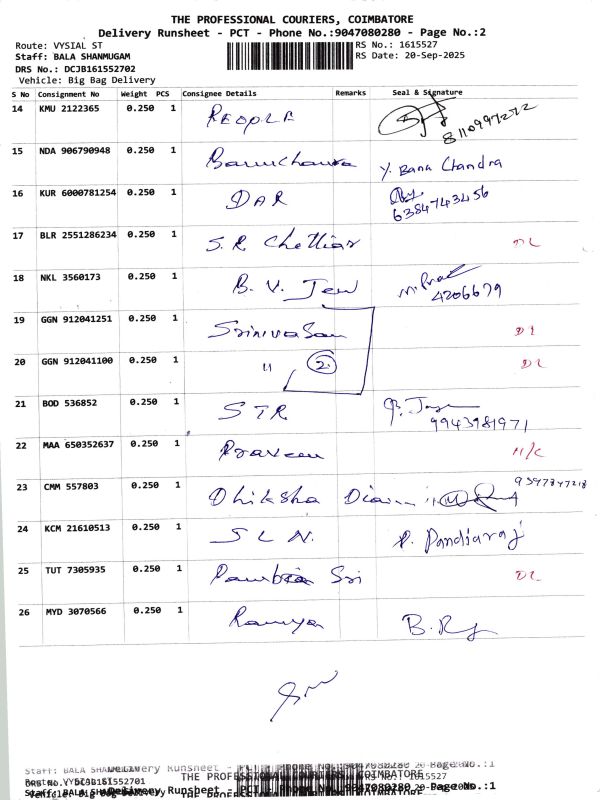 THE PROFESSIONAL COURIERS, COIMBATORE
Delivery Runsheet - PCT - Phone No.:9047080280 - Page No.:2
Route: VYSIAL ST RS No.: 1615527
Staff: BALA SHANMUGAM RS Date: 20-Sep-2025
DRS No.: DCJB161552702
Vehicle: Big Bag Delivery
S No Consignment No Weight PCS Consignee Details Remarks Seal & Signature
14 KMU 2122365 0.250 1 PEOPLE 8110997272
15 NDA 906790948 0.250 1 Y. Bana Chandra
16 KUR 6000781254 0.250 1 DAR 6384743456
17 BLR 2551286234 0.250 1 S.R. Chettiar DL
18 NKL 3560173 0.250 1 B. V. Jew 4206679
19 GGN 912041251 0.250 1 Srinivasan DL
20 GGN 912041100 0.250 1 " 2 DL
21 BOD 536852 0.250 1 STR 9943981971
22 MAA 650352637 0.250 1 Praveen H/C
23 CMM 557803 0.250 1 Dhiksha
24 KCM 21610513 0.250 1 S L N. P. Pandiaraj
25 TUT 7305935 0.250 1 Sri DL
26 MYD 3070566 0.250 1 Ramya
Delivery Runsheet - PCT - Phone No.:9047080280 - Page No.:1
THE PROFESSIONAL COURIERS, COIMBATORE